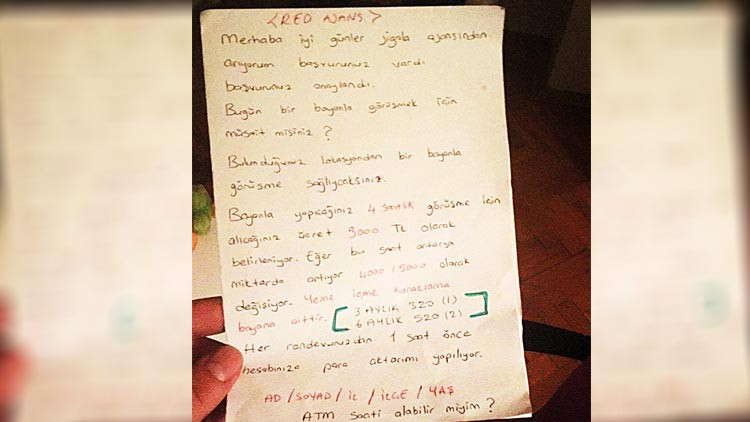 <RED AJANS>
Merhaba iyi günler jigolo ajansından
arıyorum başvurunuz vardı
başvurunuz onaylandı.
Bugün bir bayanla görüşmek için
müsait misiniz ?
Bulunduğunuz lokasyondan bir bayanla
görüşme sağlıycaksınız.
Bayanla yapıcağınız 4 saatlik görüşme için
alıcağınız ücret 3000 TL olarak
belirleniyor. Eğer bu saat artarsa
miktarda artıyor 4000 / 5000 olarak
değişiyor. Yeme içme konaklama
bayana aittir. [3 AYLIK 320 (1)
6 AYLIK 520 (2)]
Her randevunuzdan 1 saat önce
hesabınıza para aktarımı yapılıyor.
AD / SOYAD / İL / İLÇE / YAŞ
ATM saati alabilir miyim ?